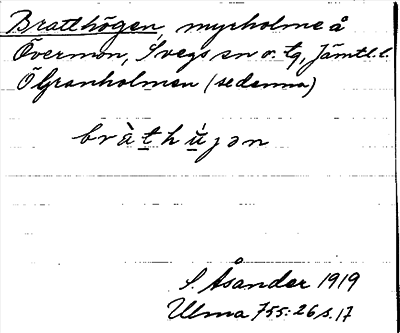 Bratthögen, myrholme å
Övermon, Svegs sn o. tg, Jämtl. l.
Ö Granholmen (se denna)
bràt̲hù̲ȷən
S. Åsander 1919
Ulma 755:26 s. 17